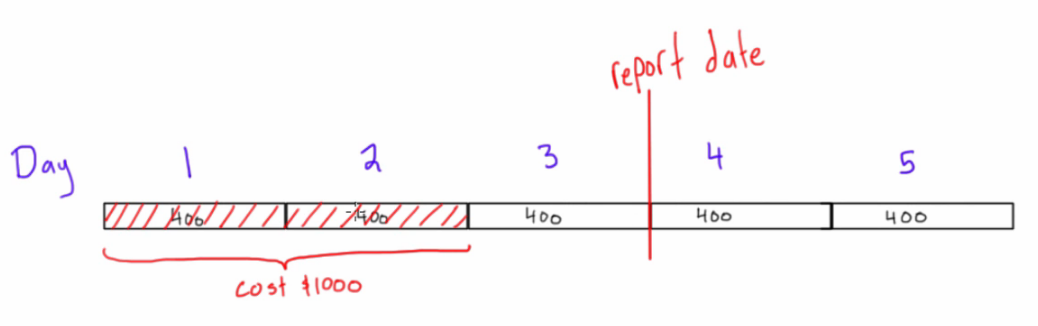 report date
Day 1 2 3 4 5
400 400 400 400 400
cost $1000